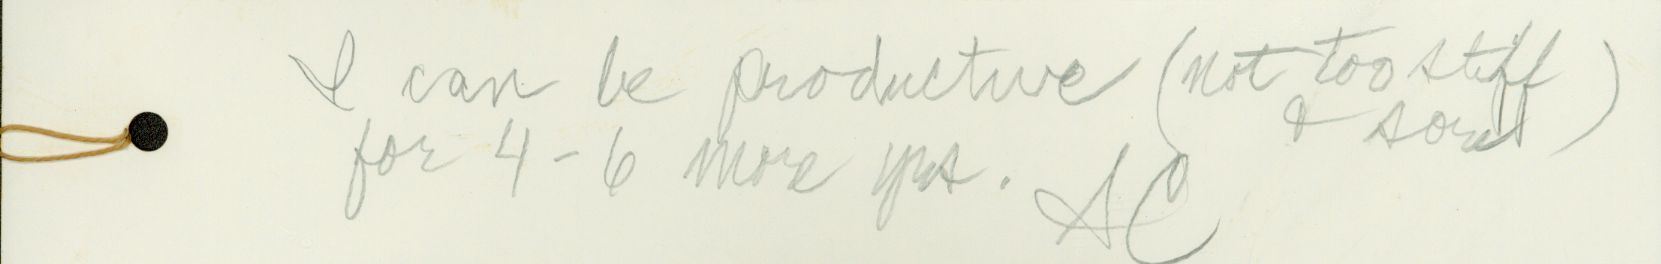 I can be productive (not too stiff
& sore)
for 4-6 more yrs. SC